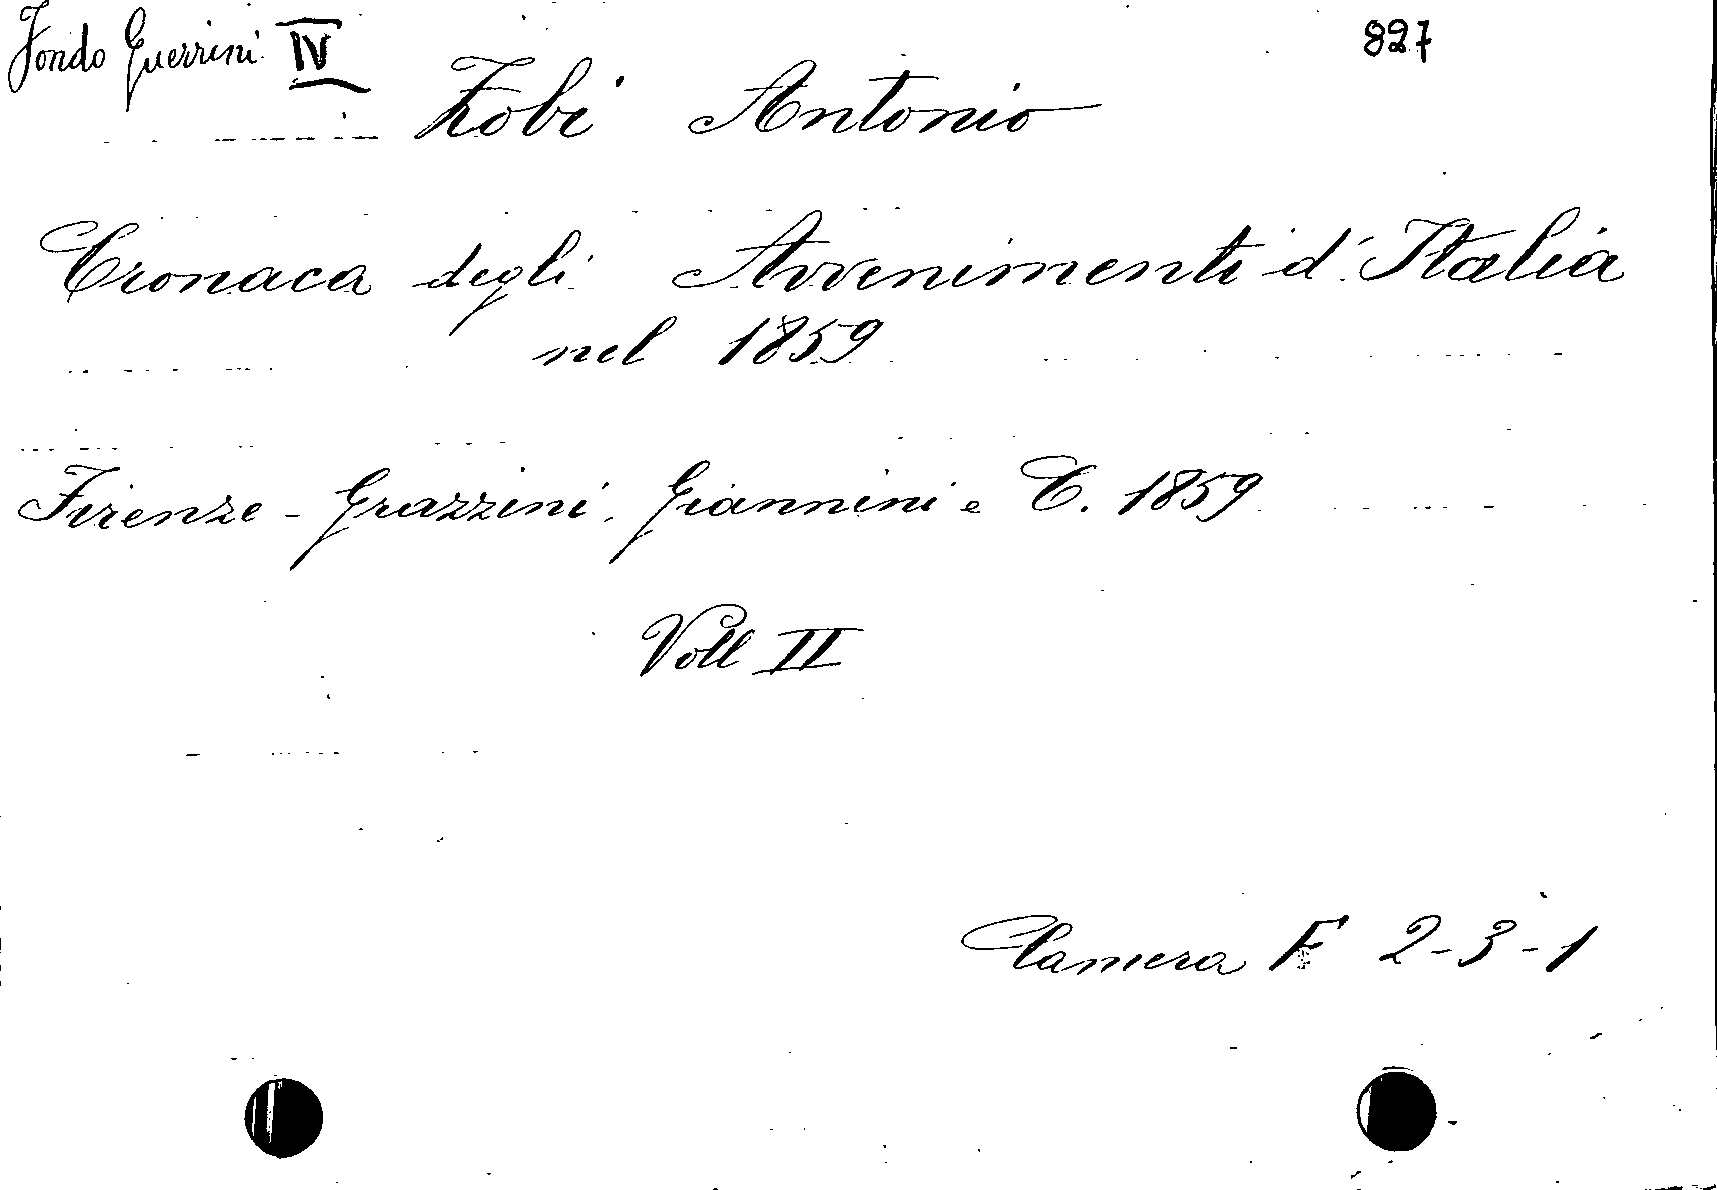 Fondo Guerrini IV
827
Zobi Antonio
Cronaca degli Avvenimenti d'Italia
nel 1859
Firenze - Grazzini, Giannini e C. 1859
Voll II
Camera F 2-3-1